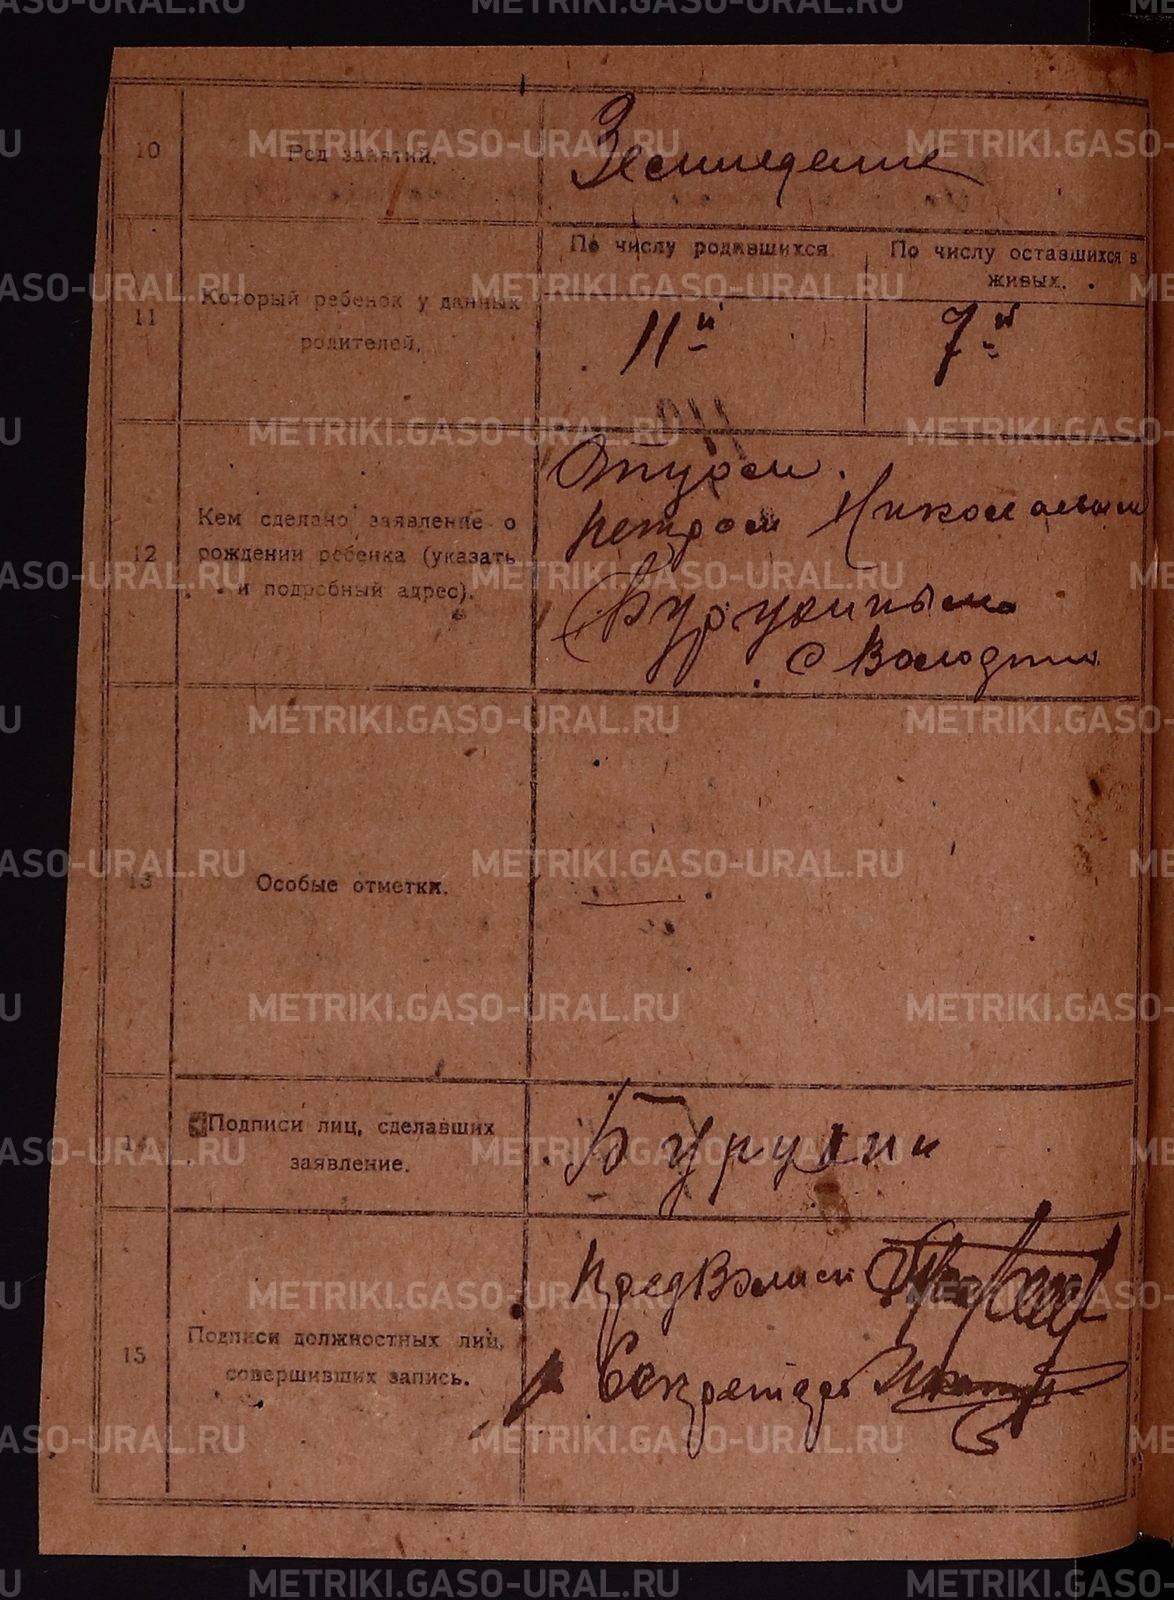 10
Род занятий.
Земледелие
11
Который ребенок у данных
родителей.
По числу родившихся
По числу оставшихся в
живых.
11й
7й
12
Кем сделано заявление о
рождении ребенка (указать
и подробный адрес).
Отцом
Петром Николаевым
Бурухиным
с Володино
13
Особые отметки.
14
Подписи лиц, сделавших
заявление.
Бурухин
15
Подписи должностных лиц,
совершивших запись.
Пред
Секретарь
METRIKI.GASO-URAL.RU